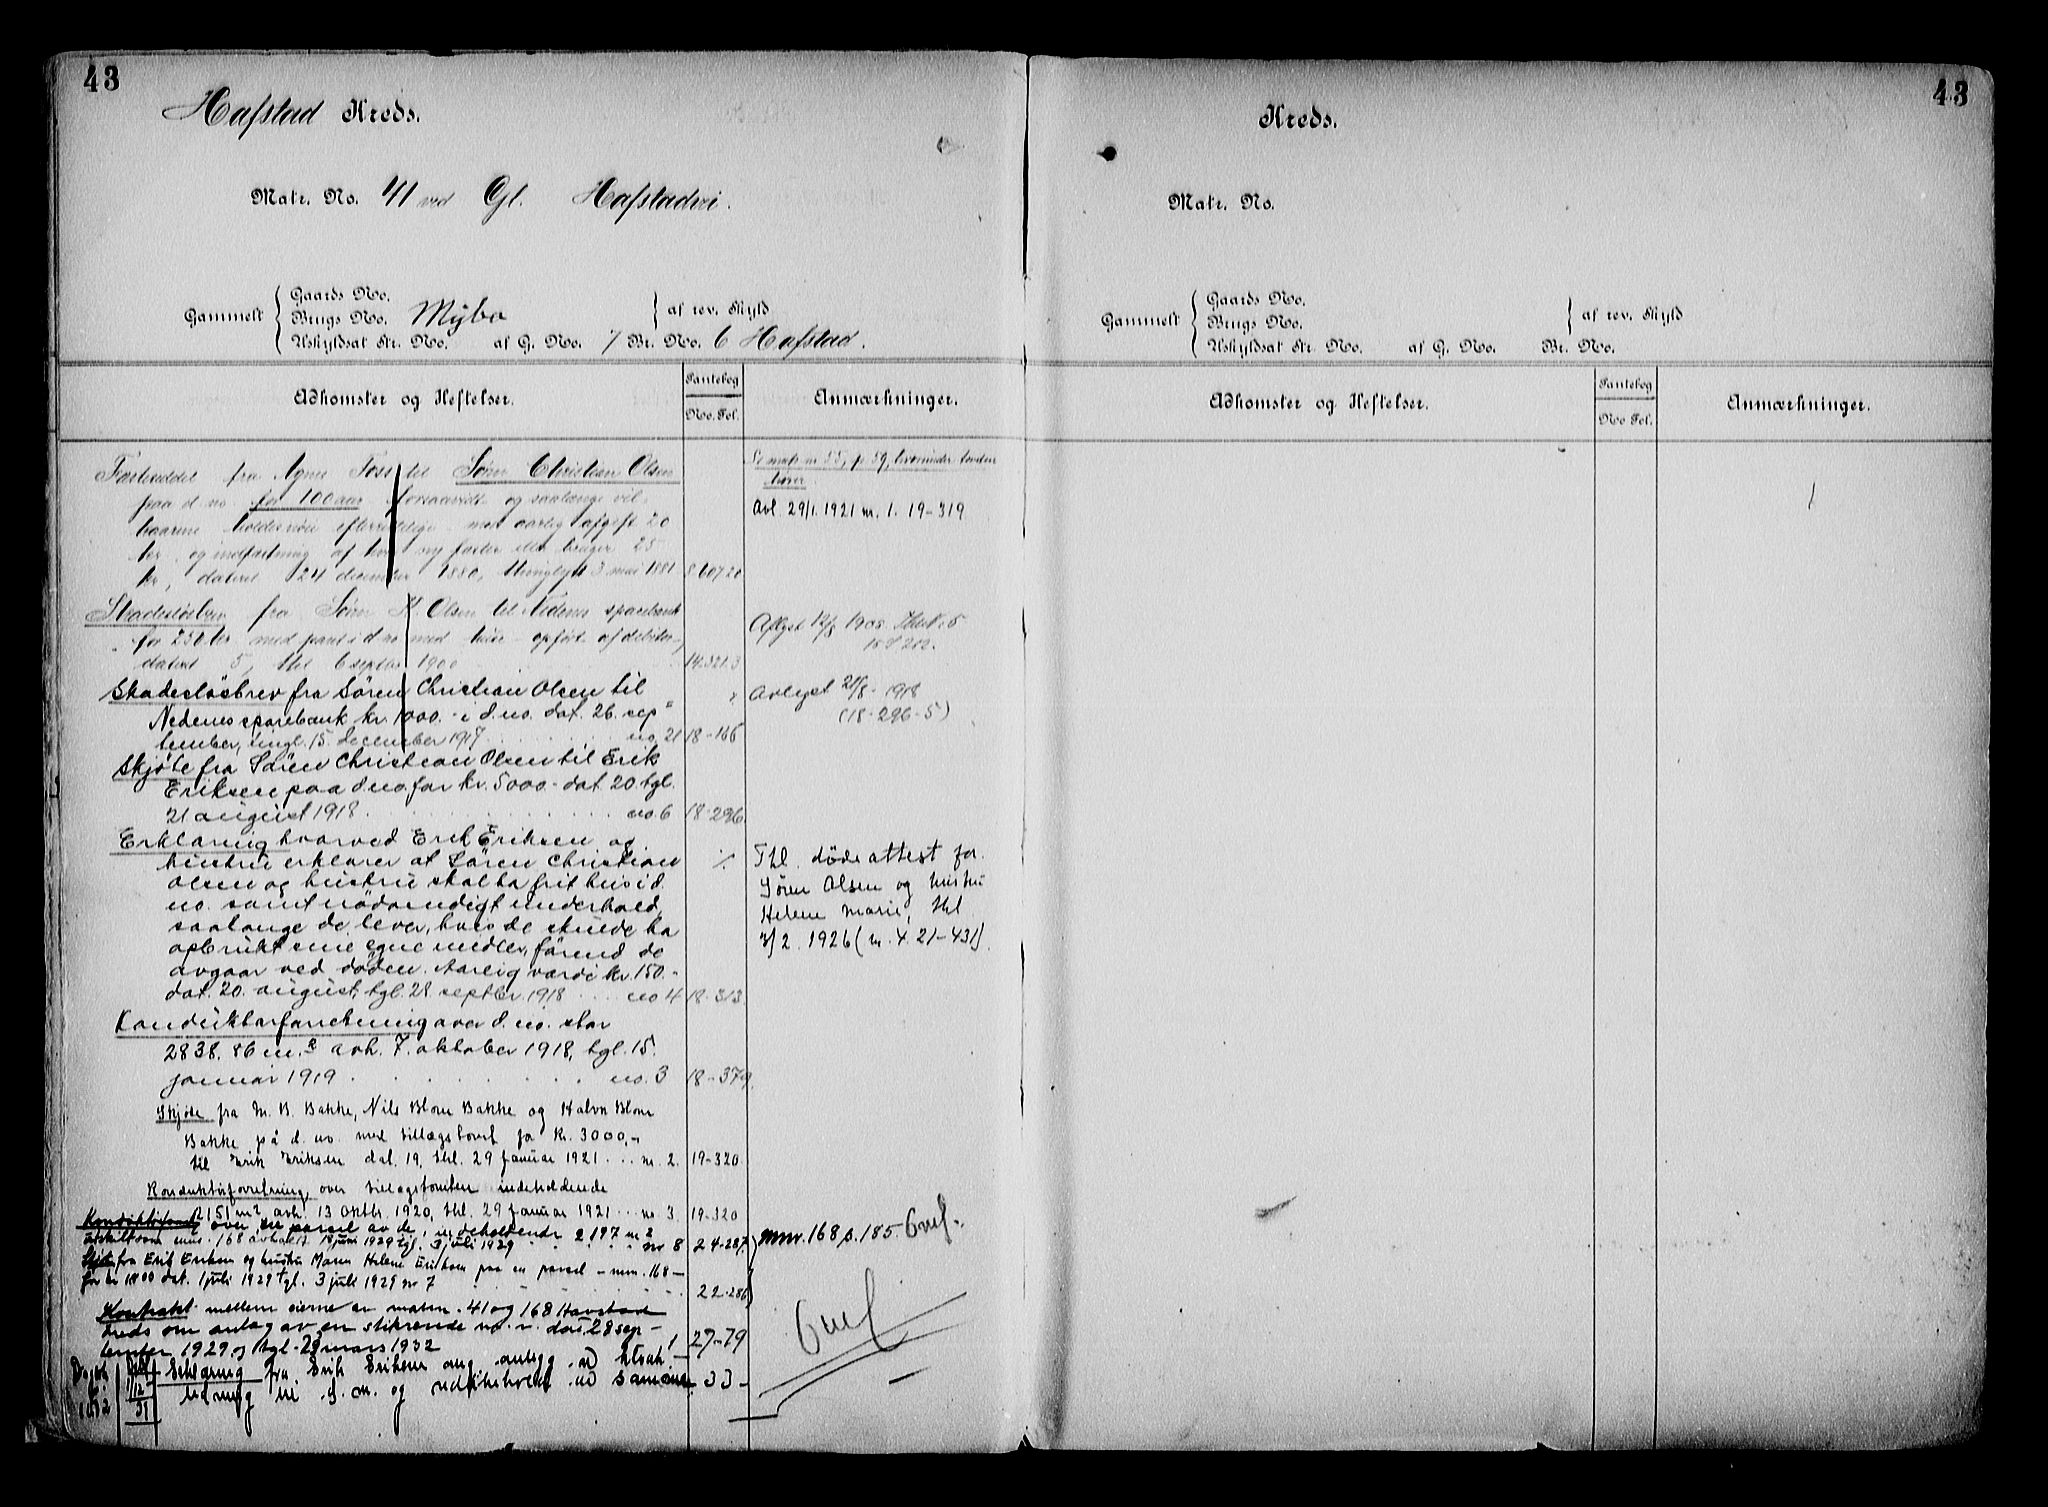 43
Hafstad Kreds.
Matr. No. 41 ved Gl. Hafstadvei.
Gaards No.
Gammelt Brugs No. Mybo af rev. Skyld
Uskyldsat Str. No. af G. No. 7 Br. No. 6 Hafstad.
Adkomster og Heftelser.
Pantebog
No. Fol.
Anmærkninger.
Fæsteseddel fra Agnes Foss til Søren Christian Olsen
paa d. no for 100 aar forsaavidt og saalænge vil-
kaarene holdes efterrettelige mod aarlig afgift 20
kr og indfæstning af hver ny fæster eller bruger 25
kr, dateret 24 december 1880, thinglyst 3 mai 1881 8 607 20
Se matr nr 55, p 59,
Avl. 29/1. 1921 nr. 1. 19-319
Skadesløsbrev fra Søren K Olsen til Nedenes sparebank
for 250 kr med pant i d no med huse opført af debitor,
dateret 5, thl 6 septbr 1900 14.321.3
Aflyst 12/8 1908
Skadesløsbrev fra Søren Christian Olsen til
Nedenes sparebank kr. 1000.- i d. no. dat. 26. sep"
tember, tingl. 15. december 1917 no, 21 18-166
Avlyst 21/8 - 1918
(18-296-5)
Skjøte fra Søren Christian Olsen til Erik
Eriksen paa d no. for kr. 5000.- dat. 20. tgl.
21 august 1918 no. 6 18-296
Erklæring hvorved Erik Eriksen og
hustru erklærer at Søren Christian
Olsen og hustru skal ha frit hus i d.
no. samt nødvendigt underhold,
saalænge de lever, hvis de skulde ha
opbrukt sine egne midler, førend de
avgaar ved døden. Aarlig værdi kr. 150.-
dat. 20. august, tgl. 28 septbr. 1918 no 4 18-313
Thl. dødsattest for
Søren Olsen og hustru
Helene Marie, thl
3/2. 1926 (nr. 4. 21-431).
Konduktørforretning over d. no. stor
2838.86 m.² avh. 7. oktober 1918, tgl. 15.
januar 1919 no. 3 18-379
Skjøte fra M. B. Bakke, Nils Blom Bakke og Halvor Blom
Bakke på d. no. med tillægstomt for kr. 3000,-
til Erik Eriksen dat. 19, thl. 29 januar 1921 nr. 2. 19-320
Konduktørforretning over tillægstomten indeholdende
2151 m², avh. 13 oktbr. 1920, thl. 29 januar 1921 nr. 3. 19-320
over en parsel av de, indeholdende 2197 m2
utskilt som mnr. 168 avholdt 19 juni 1929 tgl. 3 juli 1929 nr 8 24-287
Skjøte fra Erik Eriksen og hustru Maren Helene Eriksen paa en parsel - mnr. 168 -
for kr 1800 dat. 1 juli 1929 tgl. 3 juli 1929 nr 7 22-286
mnr. 168 p. 185
Kontrakt mellem eierne av matrn. 41 og 168 Havstad
kreds om anlæg av en stikrende dat 28 sep-
tember 1929 og tgl. 29 mars 1932 1 27-79
Erklæring fra Erik Eriksen ang. anlegg av kloak-
ledning og vedlikehold av samme. 33-
43
Kreds.
Matr. No.
Gaards No.
Gammelt Brugs No. af rev. Skyld
Uskyldsat Str. No. af G. No. Br. No.
Adkomster og Heftelser.
Pantebog
No Fol.
Anmærkninger.